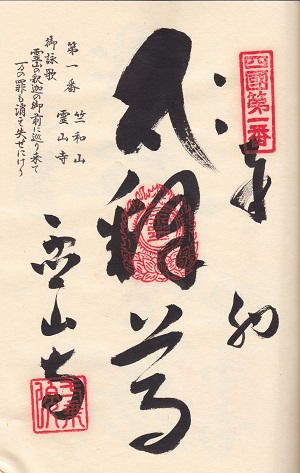 四國第一番
奉納
釋尊
霊山寺
第一番
竺和山
霊山寺
御詠歌
霊山の釈迦の御前に巡り来て
万の罪も消え失せにけり